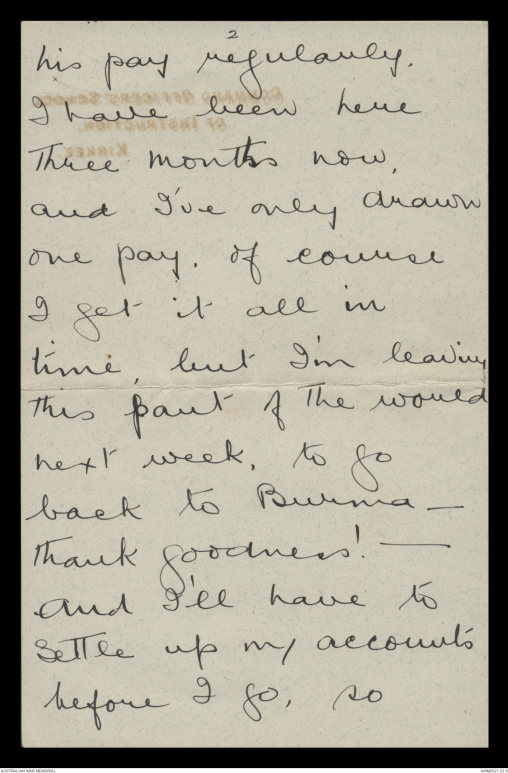 2
his pay regularly.
COMMAND OFFICERS SCHOOL
OF INSTRUCTION.
KIRKEE
I have been here
three months now,
and I've only drawn
one pay. Of course
I get it all in
time, but I'm leaving
this part of the world
next week, to go
back to Burma —
thank goodness! —
and I'll have to
settle up my accounts
before I go, so
AUSTRALIAN WAR MEMORIAL